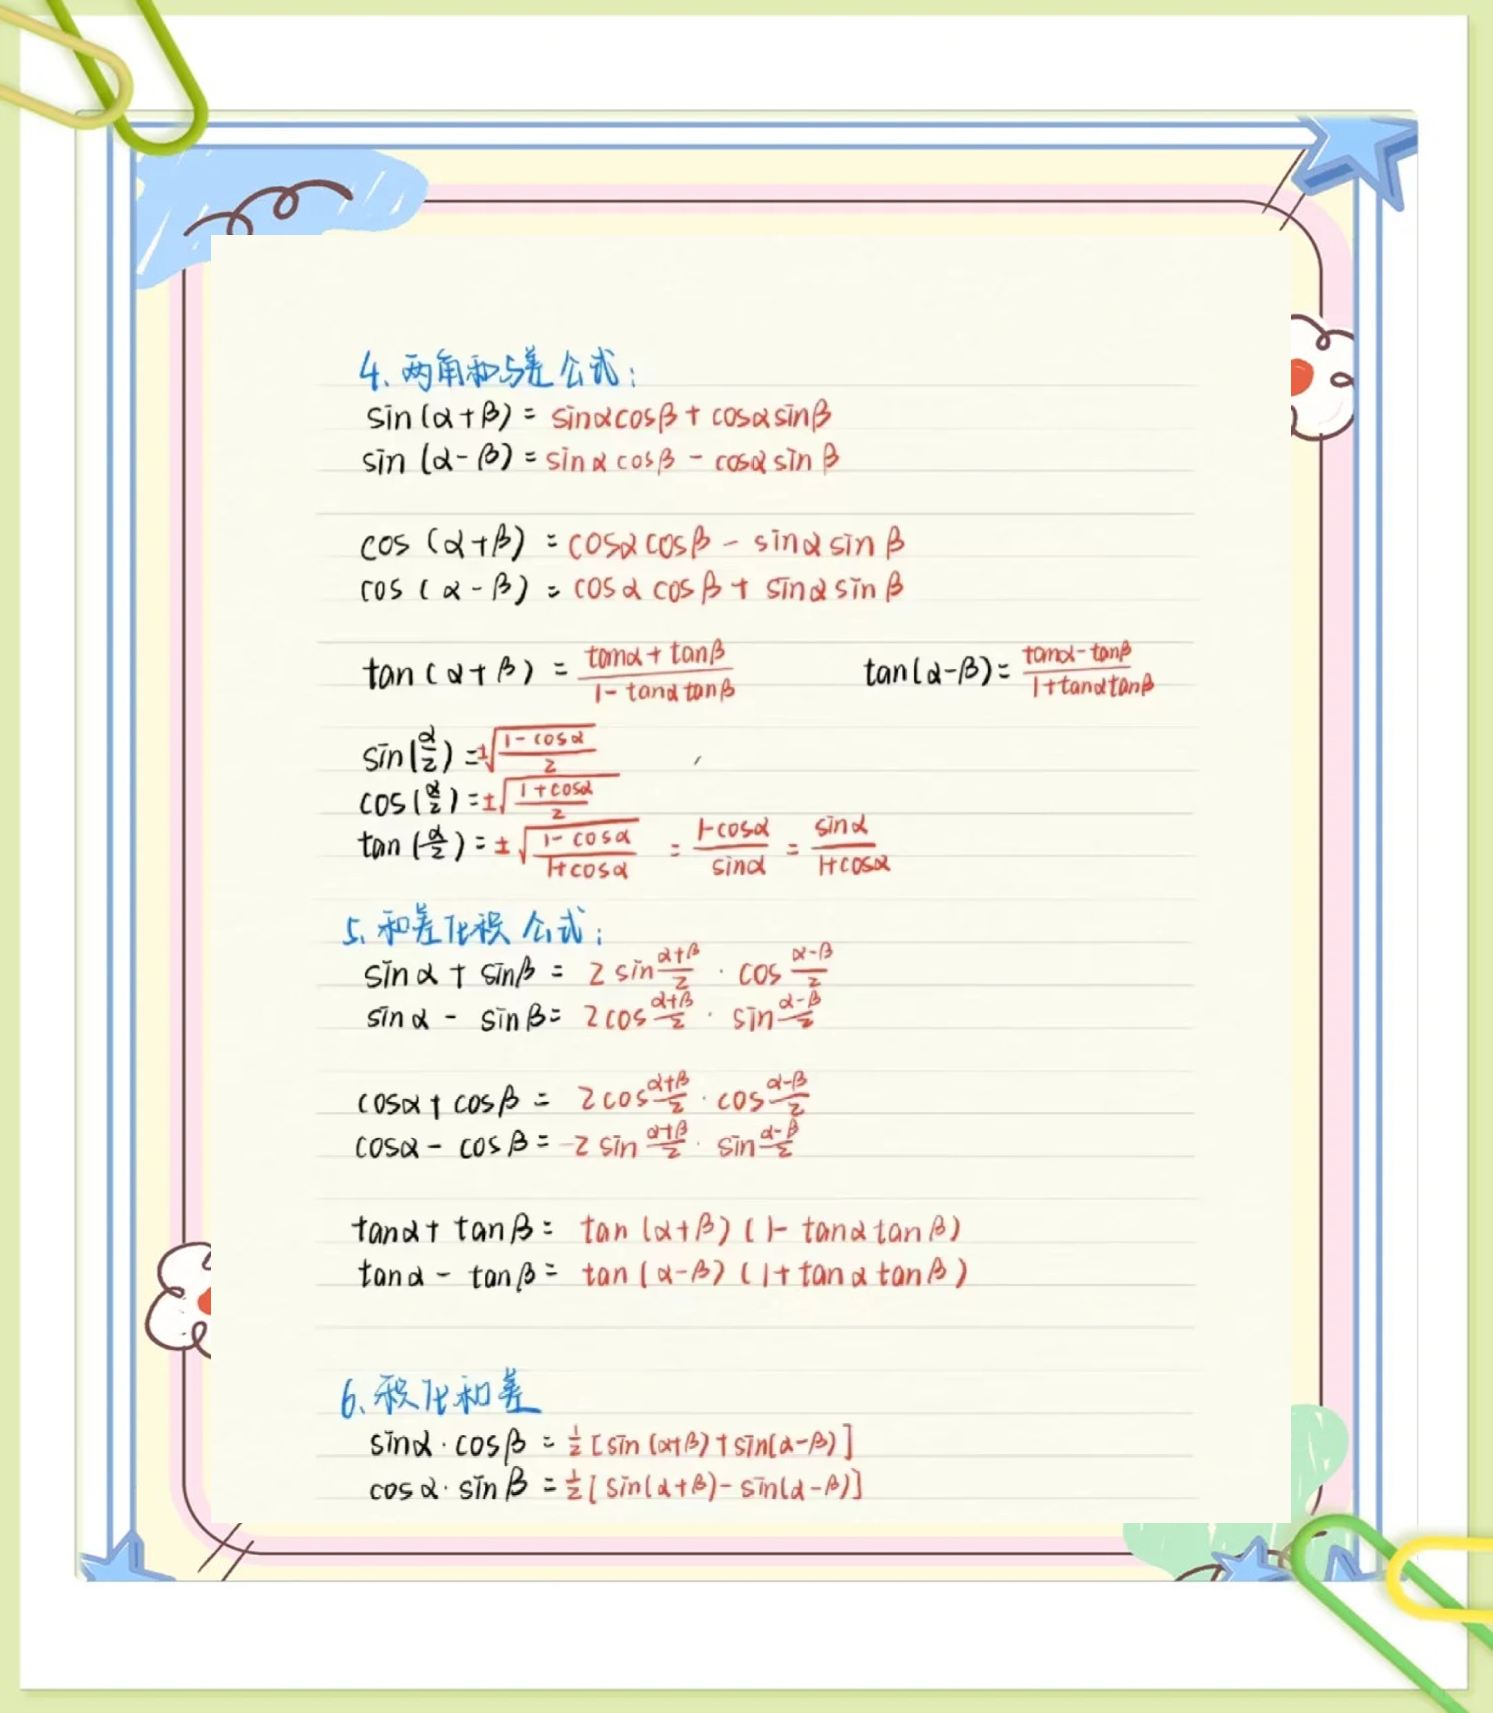 4、两角和与差公式：
sin(α+β) = sinαcosβ + cosαsinβ
sin(α-β) = sinαcosβ - cosαsinβ
cos(α+β) = cosαcosβ - sinαsinβ
cos(α-β) = cosαcosβ + sinαsinβ
tan(α+β) = (tanα+tanβ)/(1-tanαtanβ) tan(α-β) = (tanα-tanβ)/(1+tanαtanβ)
sin(α/2) = ±√((1-cosα)/2)
cos(α/2) = ±√((1+cosα)/2)
tan(α/2) = ±√((1-cosα)/(1+cosα)) = (1-cosα)/sinα = sinα/(1+cosα)
5、和差化积公式：
sinα + sinβ = 2sin((α+β)/2)·cos((α-β)/2)
sinα - sinβ = 2cos((α+β)/2)·sin((α-β)/2)
cosα + cosβ = 2cos((α+β)/2)·cos((α-β)/2)
cosα - cosβ = -2sin((α+β)/2)·sin((α-β)/2)
tanα + tanβ = tan(α+β)(1-tanαtanβ)
tanα - tanβ = tan(α-β)(1+tanαtanβ)
6、积化和差
sinα·cosβ = ½[sin(α+β)+sin(α-β)]
cosα·sinβ = ½[sin(α+β)-sin(α-β)]